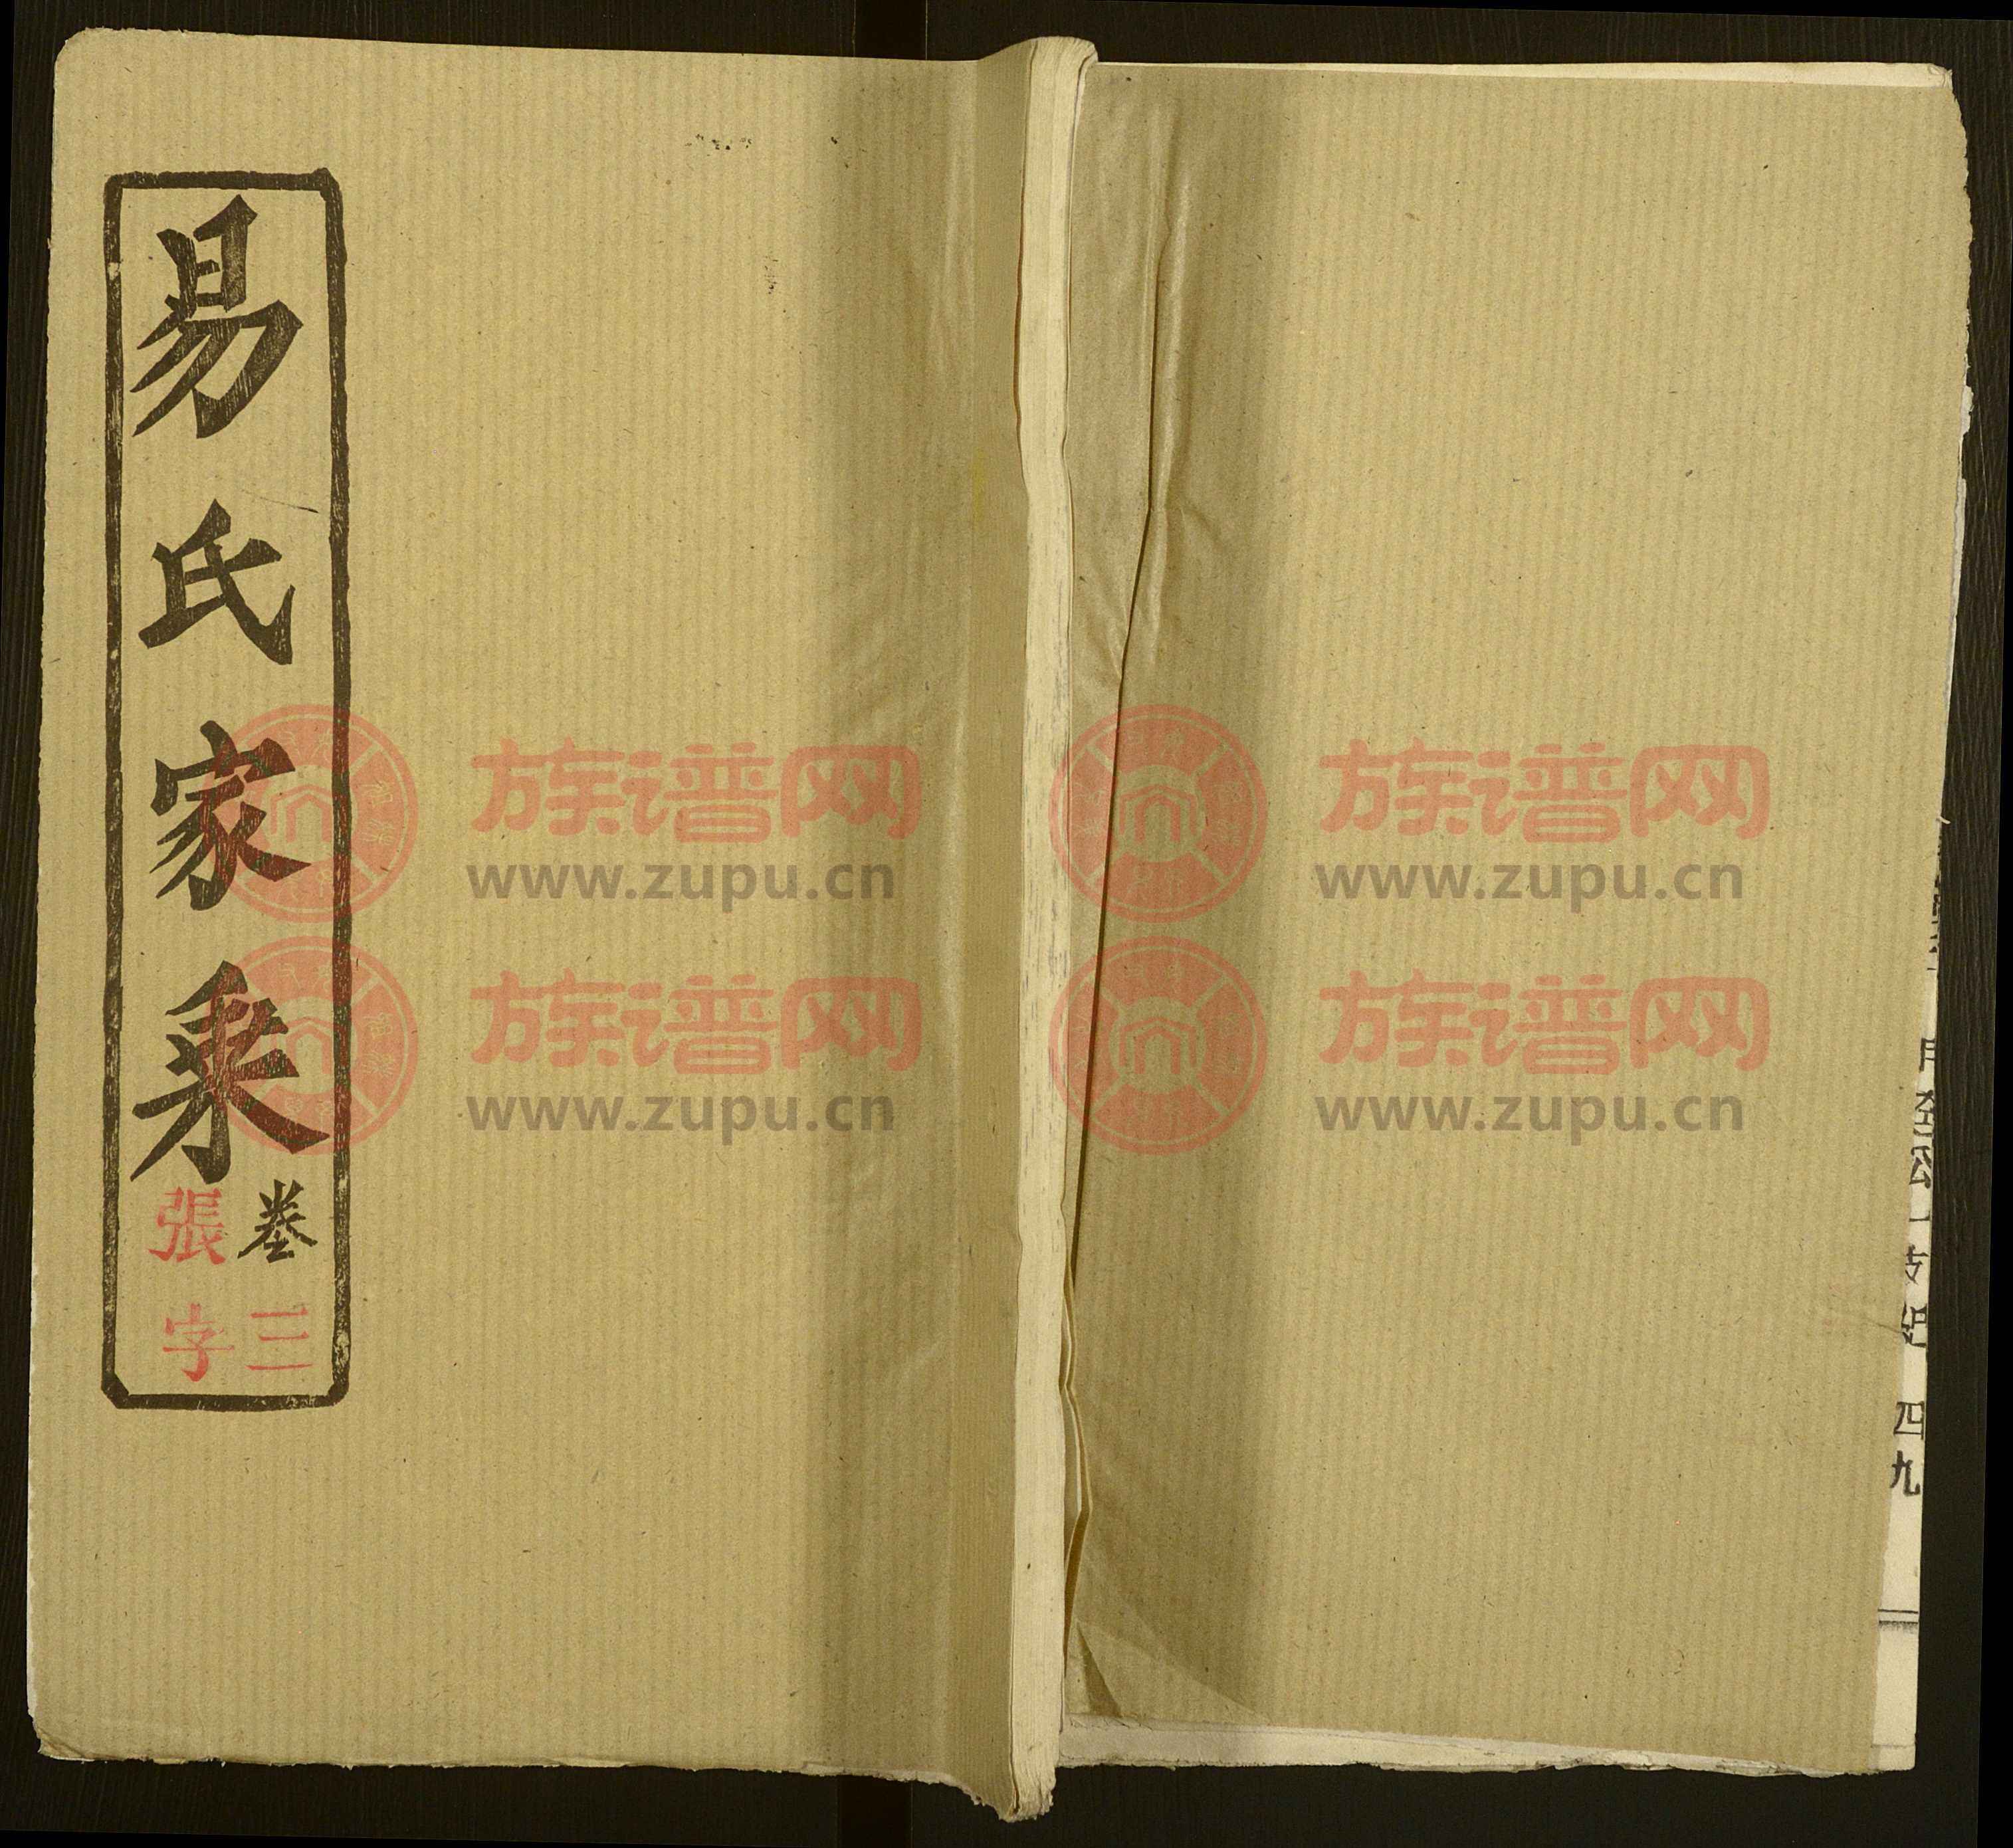 易氏家乘
卷三
張字
族谱网
www.zupu.cn
族谱网
www.zupu.cn
族谱网
www.zupu.cn
族谱网
www.zupu.cn
四九